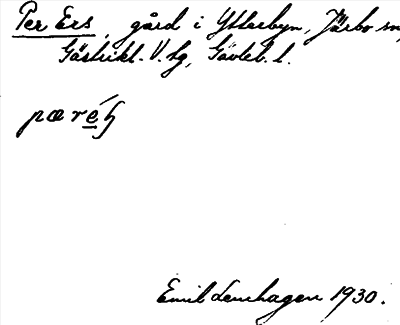 Per Ers, gård i Ytterbyn, Järbo sn,
Gästrikl. V. tg, Gävleb. l.
pæréʂ
Emil Lenhagen 1930.